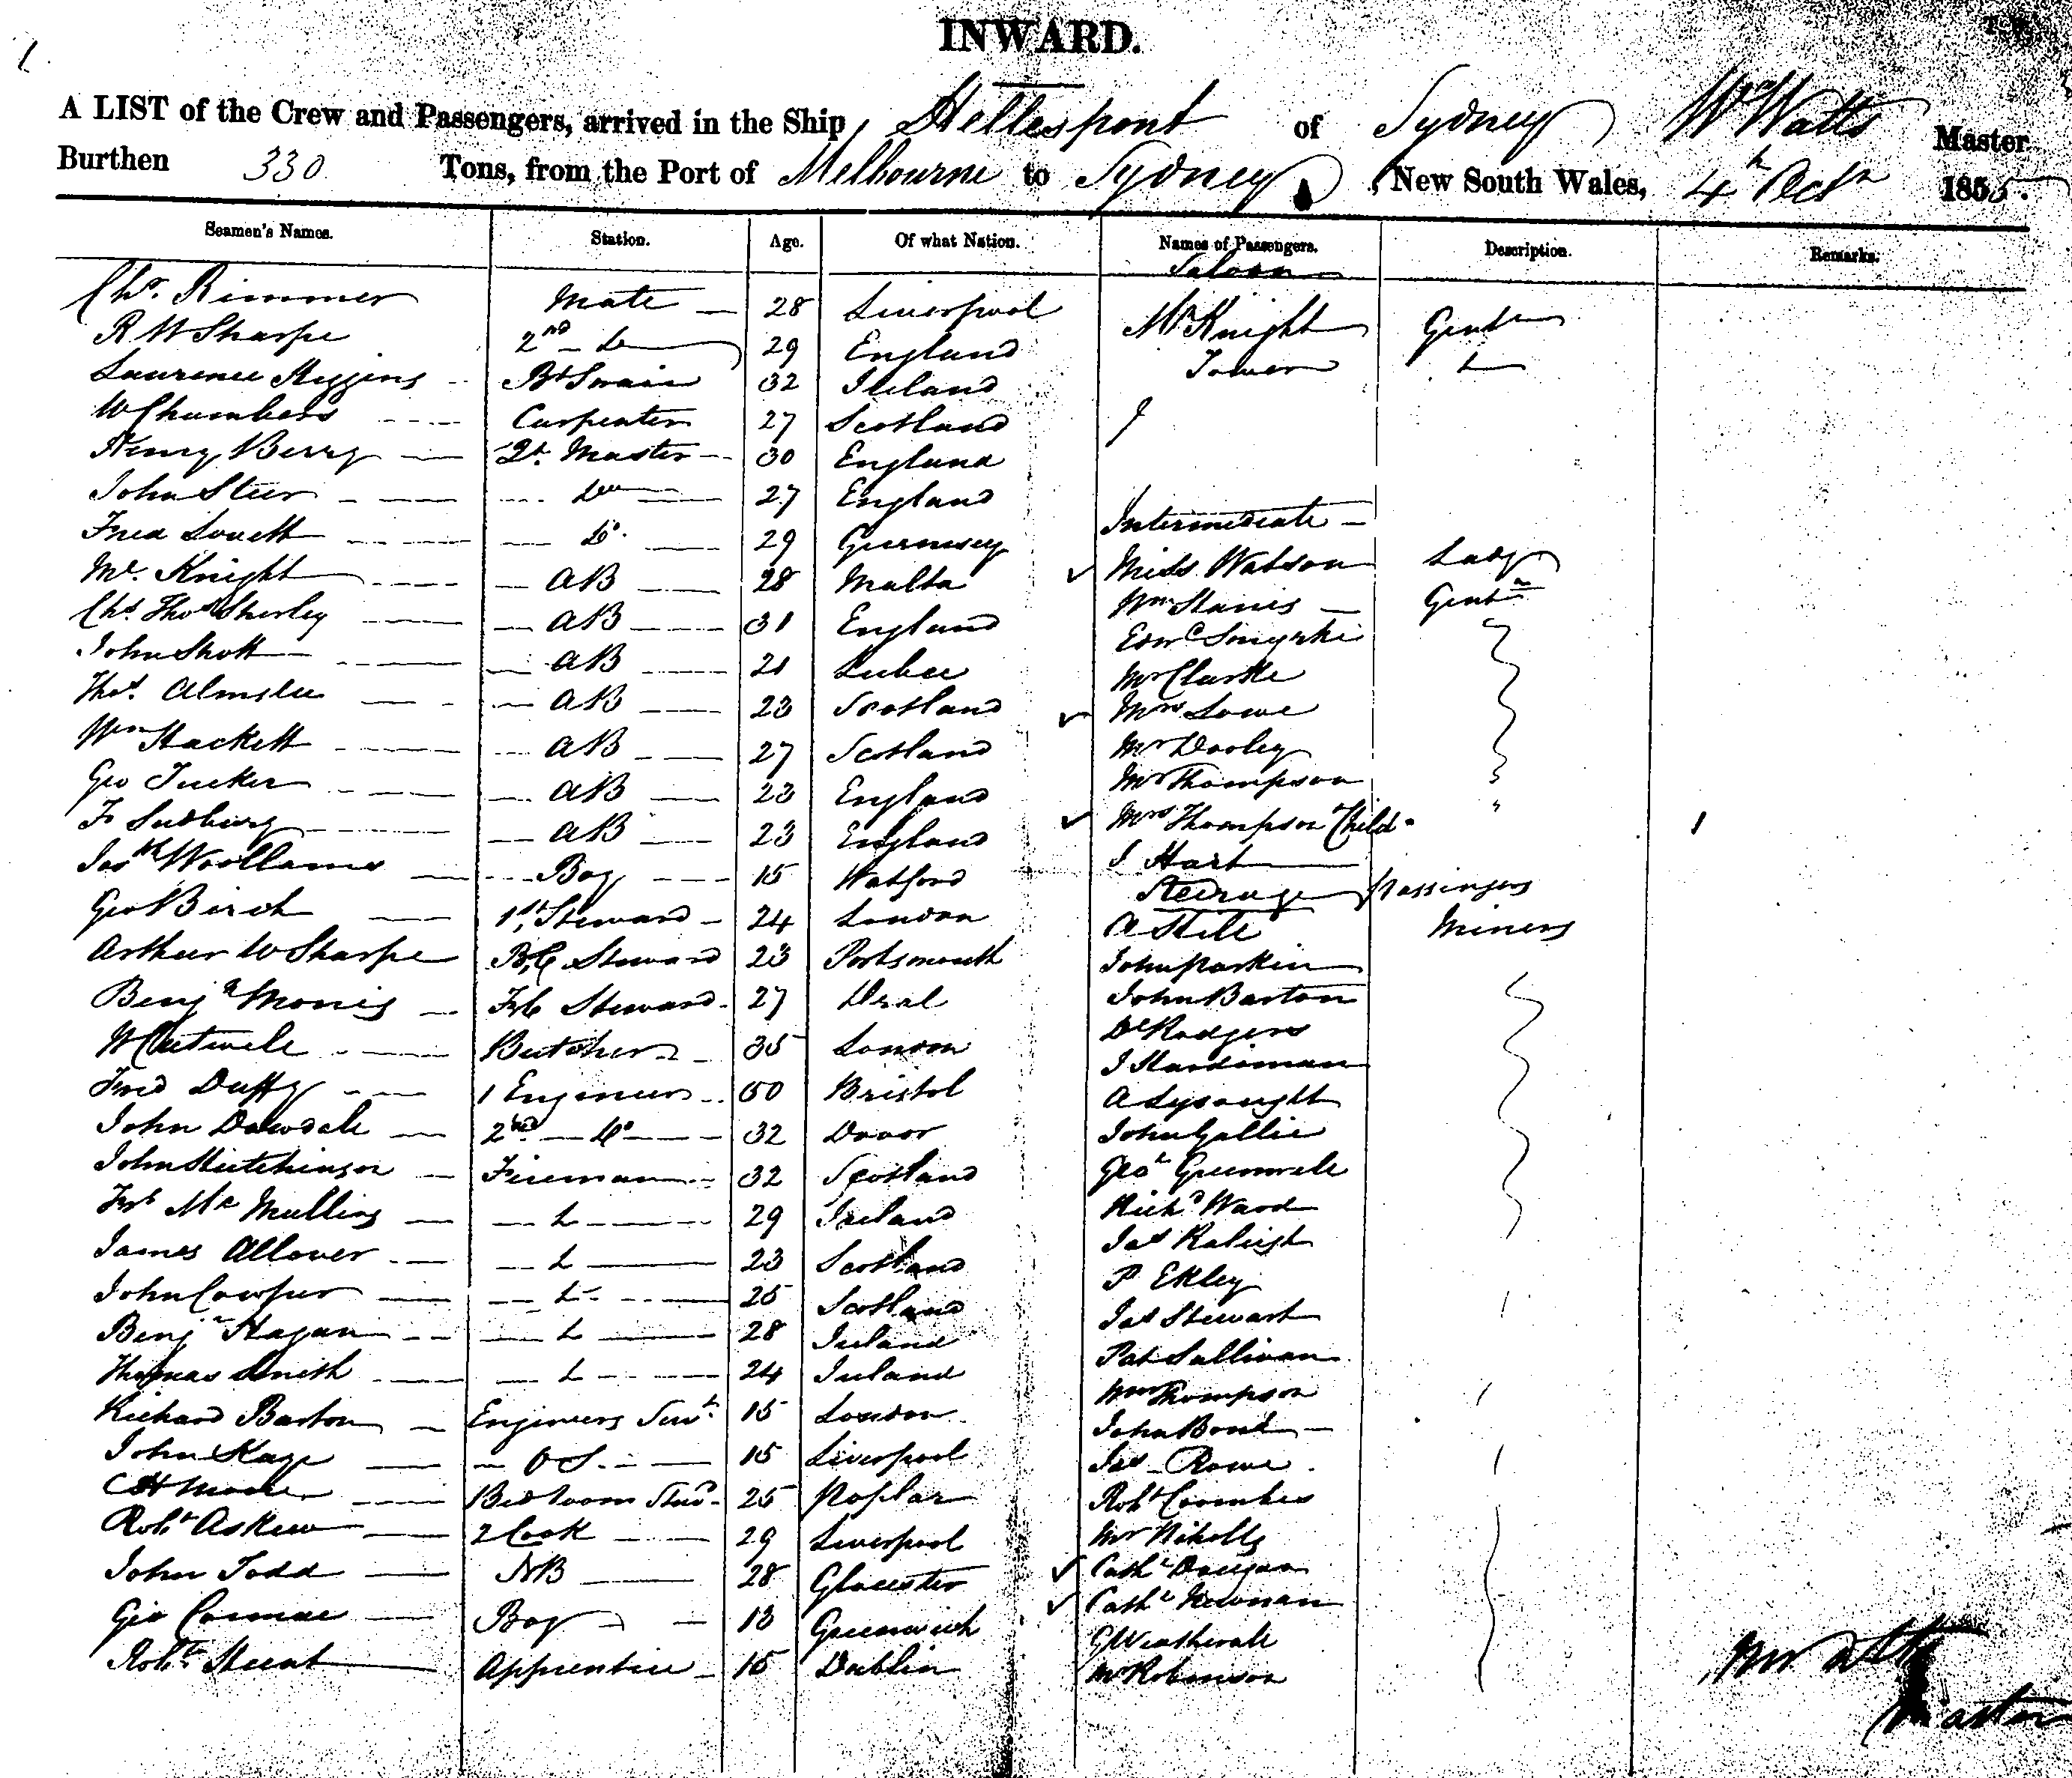 INWARD.
A LIST of the Crew and Passengers, arrived in the Ship Hellespont of Sydney Wm Watts Master
Burthen 330 Tons, from the Port of Melbourne to Sydney, New South Wales, 4th Octr 1855.
Seamen's Names. Station. Age. Of what Nation. Names of Passengers. Description. Remarks.
Saloon
Chs. Rimmer Mate 28 Liverpool Mr Knight Gentn
R W Sharpe 2nd Do 29 England Tower Do
Laurence Higgins Bt Swain 32 Ireland
W Chambers Carpenter 27 Scotland
Henry Berry Qt. Master 30 England
John Steer Do 27 England Intermediate
Fred Lovett Do. 29 Guernsey Miss Watson Lady
Mc. Knight AB 28 Malta Wm Gentn
Chs. Thos Sherley AB 31 England Edwd
John Shott AB 21 Mr Clarke
Thos. Almslee AB 23 Scotland Mrs Lowe
Wm Hackett AB 27 Scotland Mr Dooley
Geo Tucker AB 23 England Mr Thompson
Sudbury AB 23 England Mrs Thompson Child
Woollams Boy 15 Watford J Hart
Steerage Passengers
Geo Birch 1st Steward 24 London A Miners
Arthur W Sharpe B,C Steward 23 Portsmouth John Parkin
Benjn Morris F,C Steward 27 Deal John Barton
W Butcher 35 London Rodgers
Fred Duffy 1 Engineer 50 Bristol J Hardiman
John Dowdale 2nd Do 32 Dover A Lysought
John Hutchinson Fireman 32 Scotland John Gallie
Mc Mullins Do 29 Ireland Geo Greenwell
James Allover Do 23 Scotland Richd Ward
John Cowper Do 25 Scotland Jas Raleigh
Benjn Hagan Do 28 Ireland P Ekley
Thomas Smith Do 24 Ireland Jas Stewart
Richard Barton Engineers Servt. 15 London Pat Sullivan
John Kaye OS. 15 Liverpool Wm Thompson
C H Bedroom Stwd. 25 Poplar John Bond
Robt Askew 2 Cook 29 Liverpool Jas Rowe
John Todd AB 28 Glocester Robt Coombes
Geo Boy 13 Greenwich Mr Nicholls
Robt Hunt Apprentice 15 Dublin Cathe
Cathe Newman
G Weatherall
Mr Robinson
Wm Watts
Master